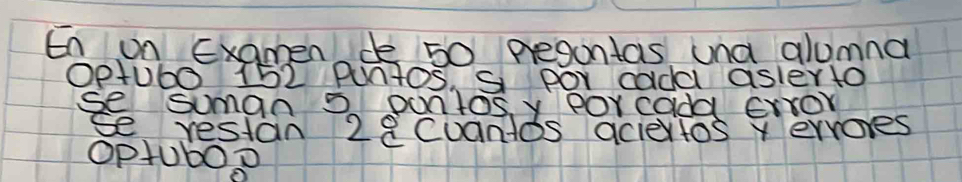 En un Examen de 50 preguntas una alumna
Optubo 152 puntos, si por cada asierto
se suman 5 puntos y por cada error
se restan 2 ¿Cuantos aciertos y errores
Optubo?